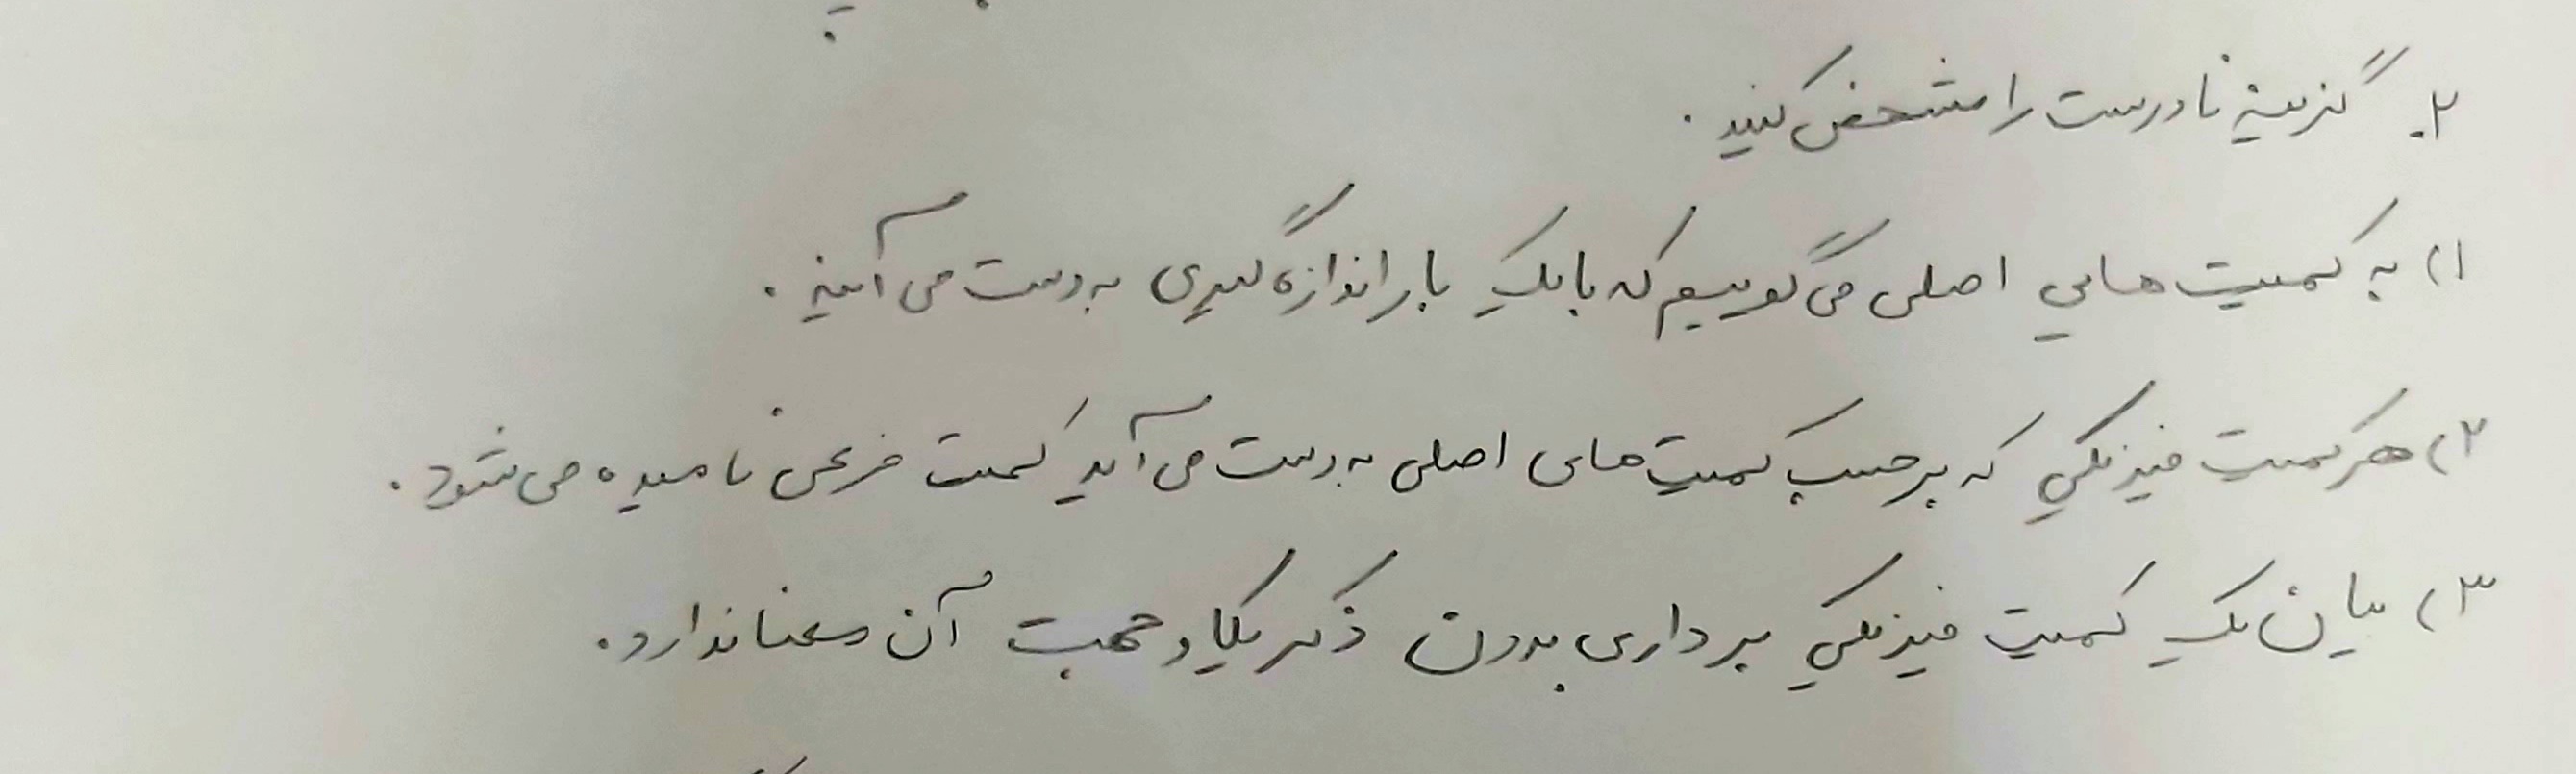 ۲. گزینهٔ نادرست را مشخص کنید.
۱) به کمیت‌هایی اصلی می‌گوییم که با یک بار اندازه‌گیری به دست می‌آیند.
۲) هر کمیت فیزیکی که برحسب کمیت‌های اصلی به دست می‌آید کمیت فرعی نامیده می‌شود.
۳) بیان یک کمیت فیزیکی برداری بدون ذکر یکا و جهت آن معنا ندارد.